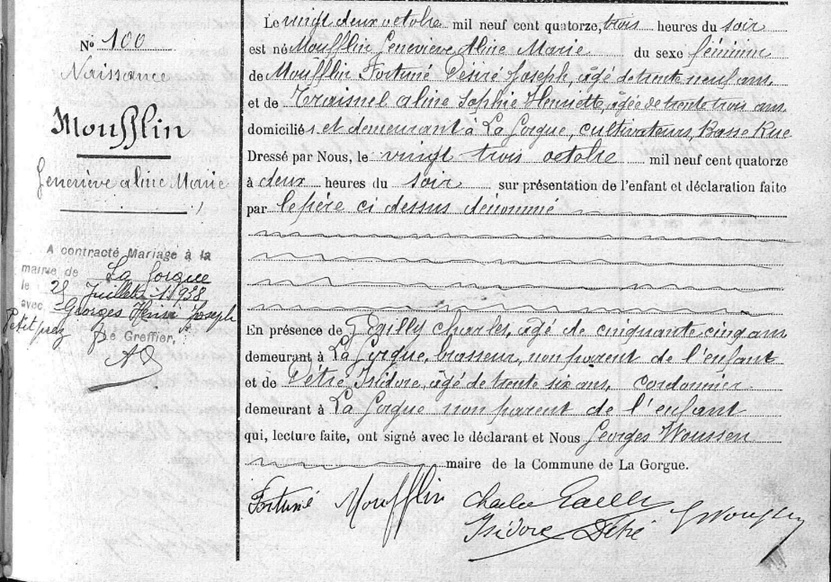 N° 100
Naissance
Moufflin
Geneviève aline Marie
A contracté Mariage à la
mairie de La Gorgue
le 28 Juillet 1938
avec Georges Henri Joseph
Petitprez
Le Greffier,
Le vingt deux octobre mil neuf cent quatorze, trois heures du soir
est né Moufflin Geneviève Aline Marie du sexe féminin
de Moufflin Fortuné Désiré Joseph, âgé de trente neuf ans
et de Traisnel aline Sophie Henriette, âgée de trente trois ans
domiciliés et demeurant à La Gorgue, cultivateurs, Basse Rue
Dressé par Nous, le vingt trois octobre mil neuf cent quatorze
à deux heures du soir sur présentation de l'enfant et déclaration faite
par le père ci dessus dénommé
En présence de Charles, âgé de cinquante cinq ans
demeurant à La Gorgue, brasseur, non parent de l'enfant
et de Détré Isidore, âgé de trente six ans, cordonnier
demeurant à La Gorgue non parent de l'enfant
qui, lecture faite, ont signé avec le déclarant et Nous Georges Woussen
maire de la Commune de La Gorgue.
Fortuné Moufflin Charles
Isidore Détré GWoussen